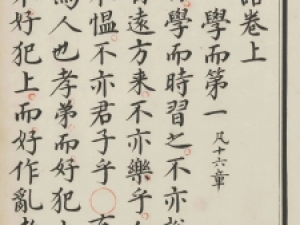 語卷上
學而第一 凡十六章
學而時習之不亦說
有遠方来不亦樂乎
不慍不亦君子乎○有
為人也孝弟而好犯上
不好犯上而好作亂者